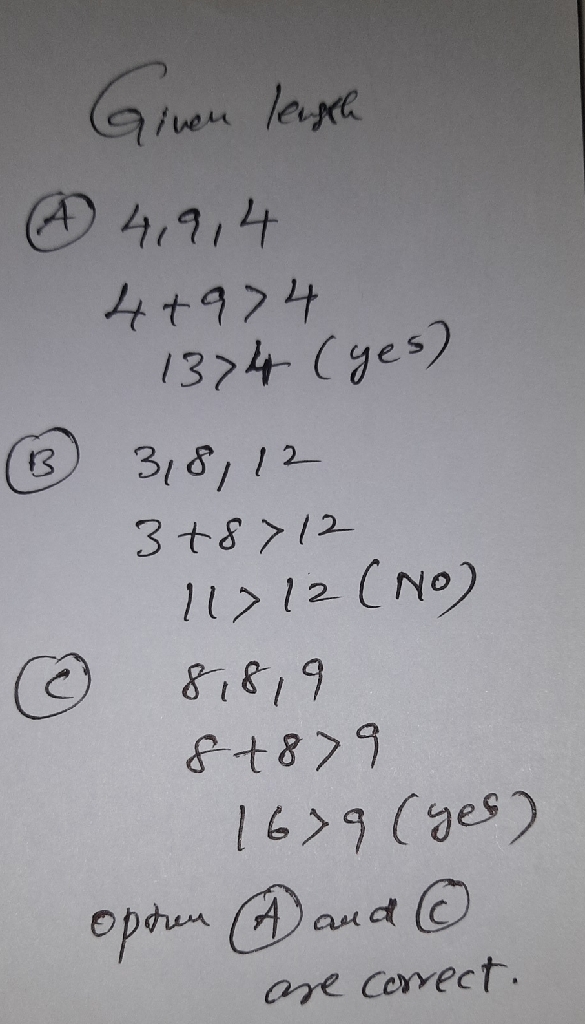 Given length
(A) 4,9,4
4+9>4
13>4 (yes)
(B) 3,8,12
3+8>12
11>12 (NO)
(C) 8,8,9
8+8>9
16>9 (yes)
option (A) and (C)
are correct.